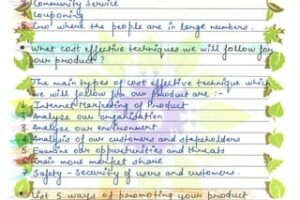 Community Service
4 Couponing
5 Cuo where the people are in large numbers.
• What cost effective techniques we will follow for
our product ?
The main types of cost effective technique which
we will follow for our product are :-
1. Internet Marketing of Product
2. Analyse our organisation
3. Analyse our environment
4. Analysis of our customers and stakeholders
5. Examine our opportunities and threats
6. Main more market share
7. Safety - Security of users and customers.
• List 5 ways of promoting your product.